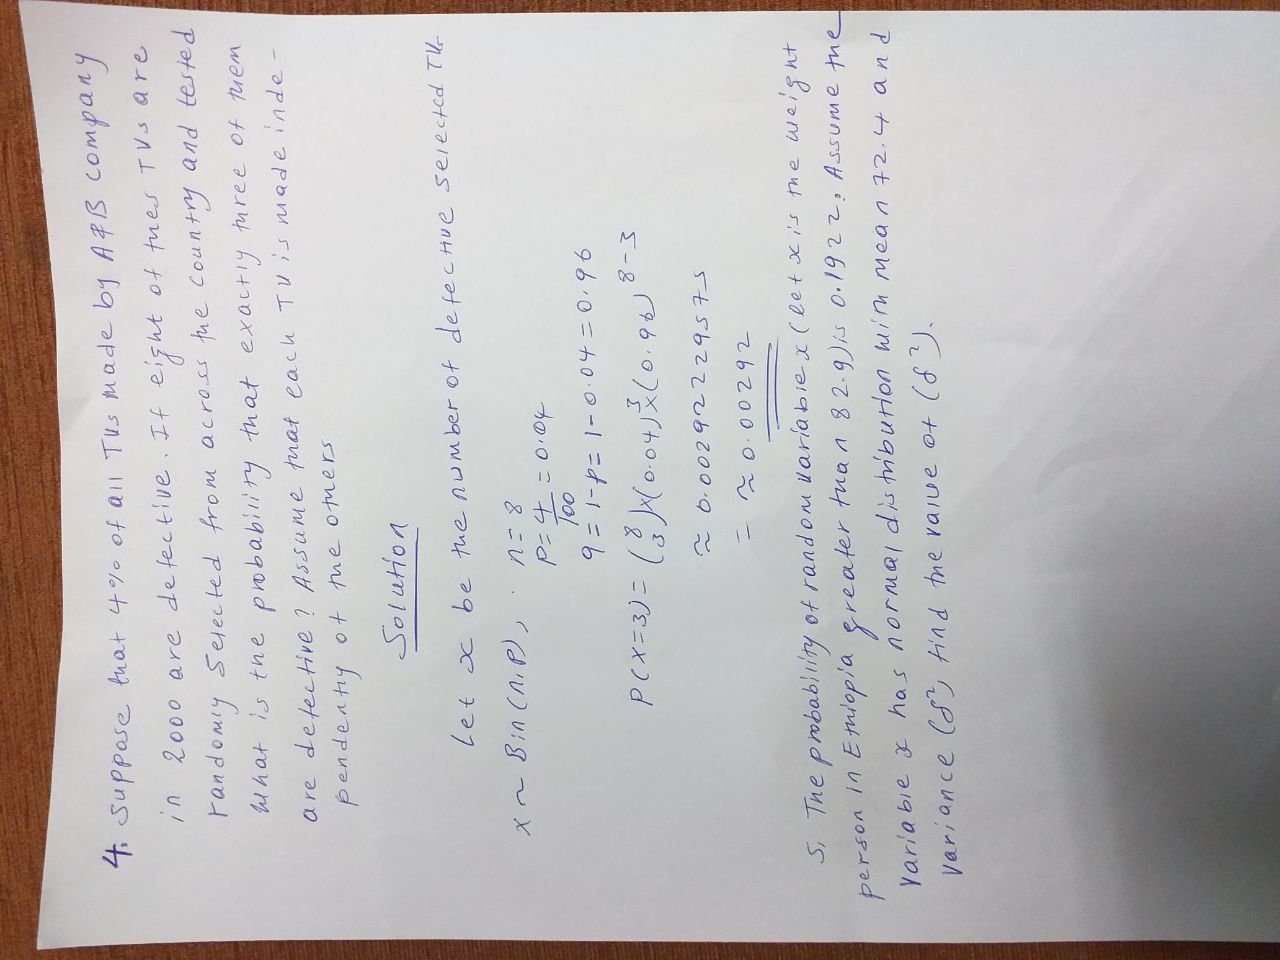 4. Suppose that 4% of all TVs made by A&B company
in 2000 are defective. If eight of thes TVs are
randomly selected from across the country and tested
what is the probability that exactly three of them
are defective? Assume that each TV is made inde-
pendently of the others
Solution
Let x be the number of defective selected TVs
x ~ Bin(n,p), n = 8
p = 4/100 = 0.04
q = 1-p = 1-0.04 = 0.96
p(x=3) = (8 3)×(0.04)^3×(0.96)^8-3
≈ 0.0029222957s
= ≈ 0.00292
5, The probability of random variable x (let x is the weight
person in Ethiopia greater than 82.9) is 0.1922. Assume the
variable x has normal distribution with mean 72.4 and
variance (δ², find the value of (δ²).